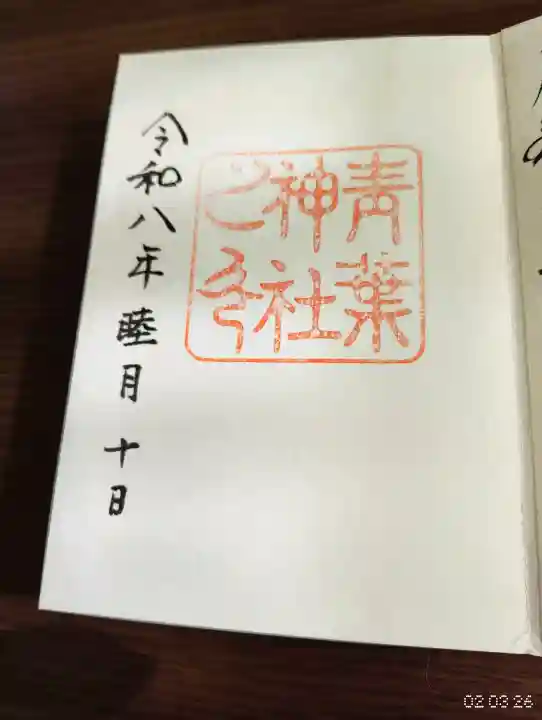 青葉
神社
令和八年睦月十日
02 03 26